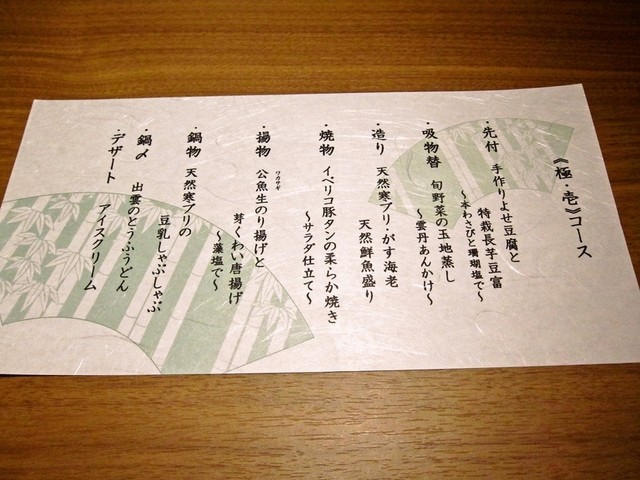 《極・壱》コース
・先付 手作りよせ豆腐と
特栽長芋豆富
～本わさびと珊瑚塩で～
・吸物替 旬野菜の玉地蒸し
～雲丹あんかけ～
・造り 天然寒ブリ・がす海老
天然鮮魚盛り
・焼物 イベリコ豚タンの柔らか焼き
～サラダ仕立て～
・揚物 公魚生のり揚げと
ワカサギ
芽くわい唐揚げ
～藻塩で～
鍋物 天然寒ブリの
豆乳しゃぶしゃぶ
・鍋〆 出雲のとうふうどん
・デザート アイスクリーム